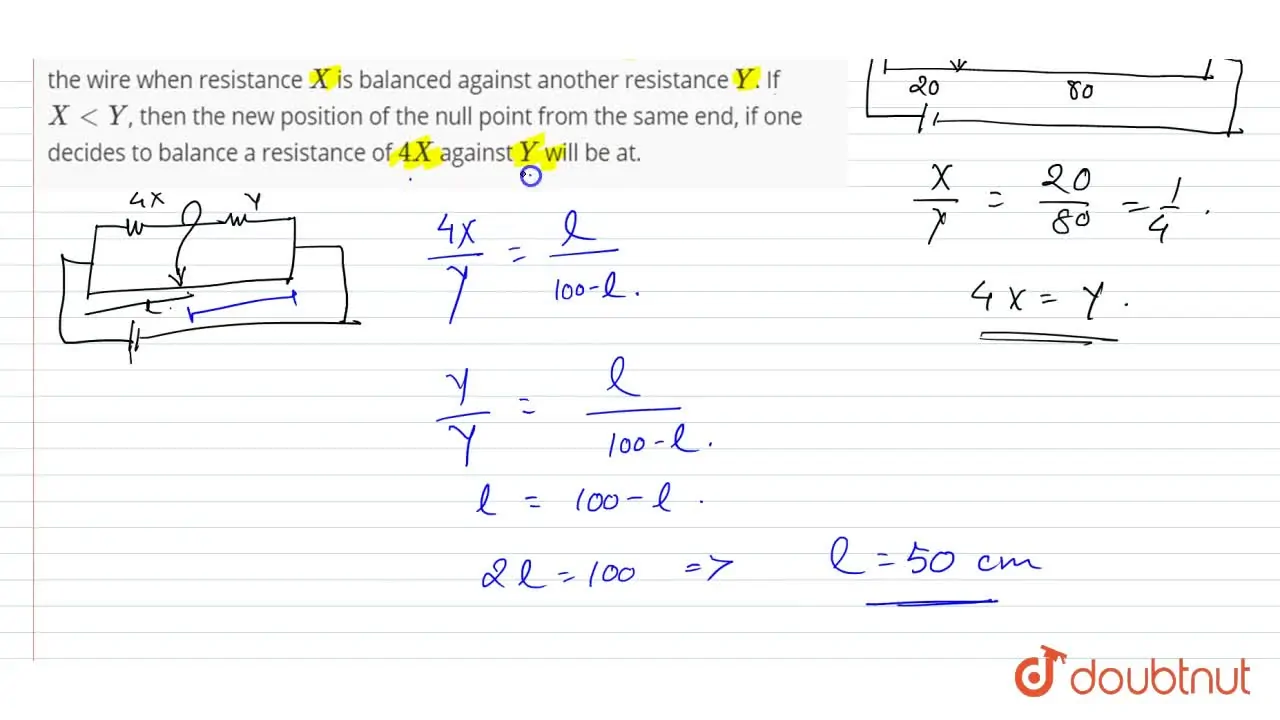 the wire when resistance X is balanced against another resistance Y. If
X < Y, then the new position of the null point from the same end, if one
decides to balance a resistance of 4X against Y will be at.
20 80
X/Y = 20/80 = 1/4 .
4X = Y .
4X Y
l .
4X/Y = l/100-l .
Y/Y = l/100-l .
l = 100-l .
2l = 100 => l = 50 cm
doubtnut